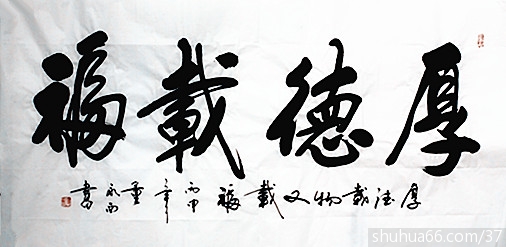 厚德載福
厚德載物又載福丙申年重
書
shuhua66.com/37